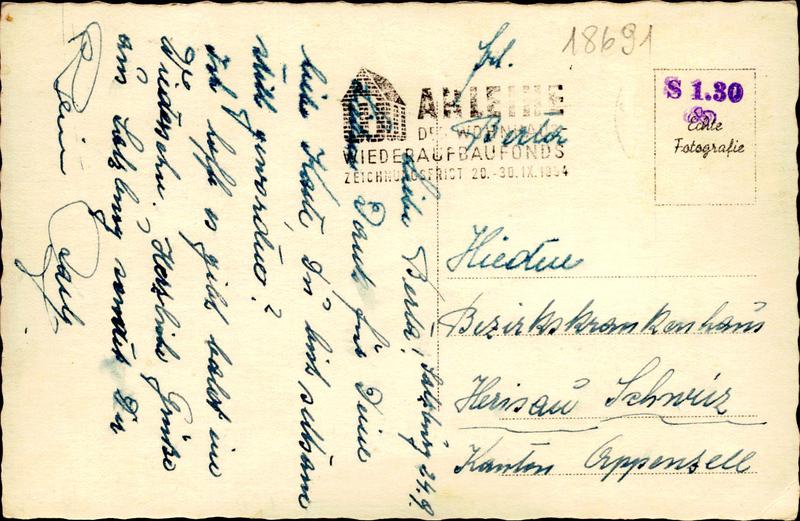 18691
S 1.30
Echte
Fotografie
ANLEIHE
DES WOHNHAUS
WIEDERAUFBAUFONDS
ZEICHNUNGSFRIST 20.-30.IX.1954
Frl.
Berta
Hiedne
Bezirkskrankenhaus
Herisau Schweiz
Kanton Appenzell
Salzburg 24.9.
Liebe Berta!
Dank für Deine
liebe Karte, Du bist seltsam
still geworden?
Ich hoffe es gibt bald ein
Wiedersehn. Herzliche Grüße
aus Salzburg sendet Dir
Dein